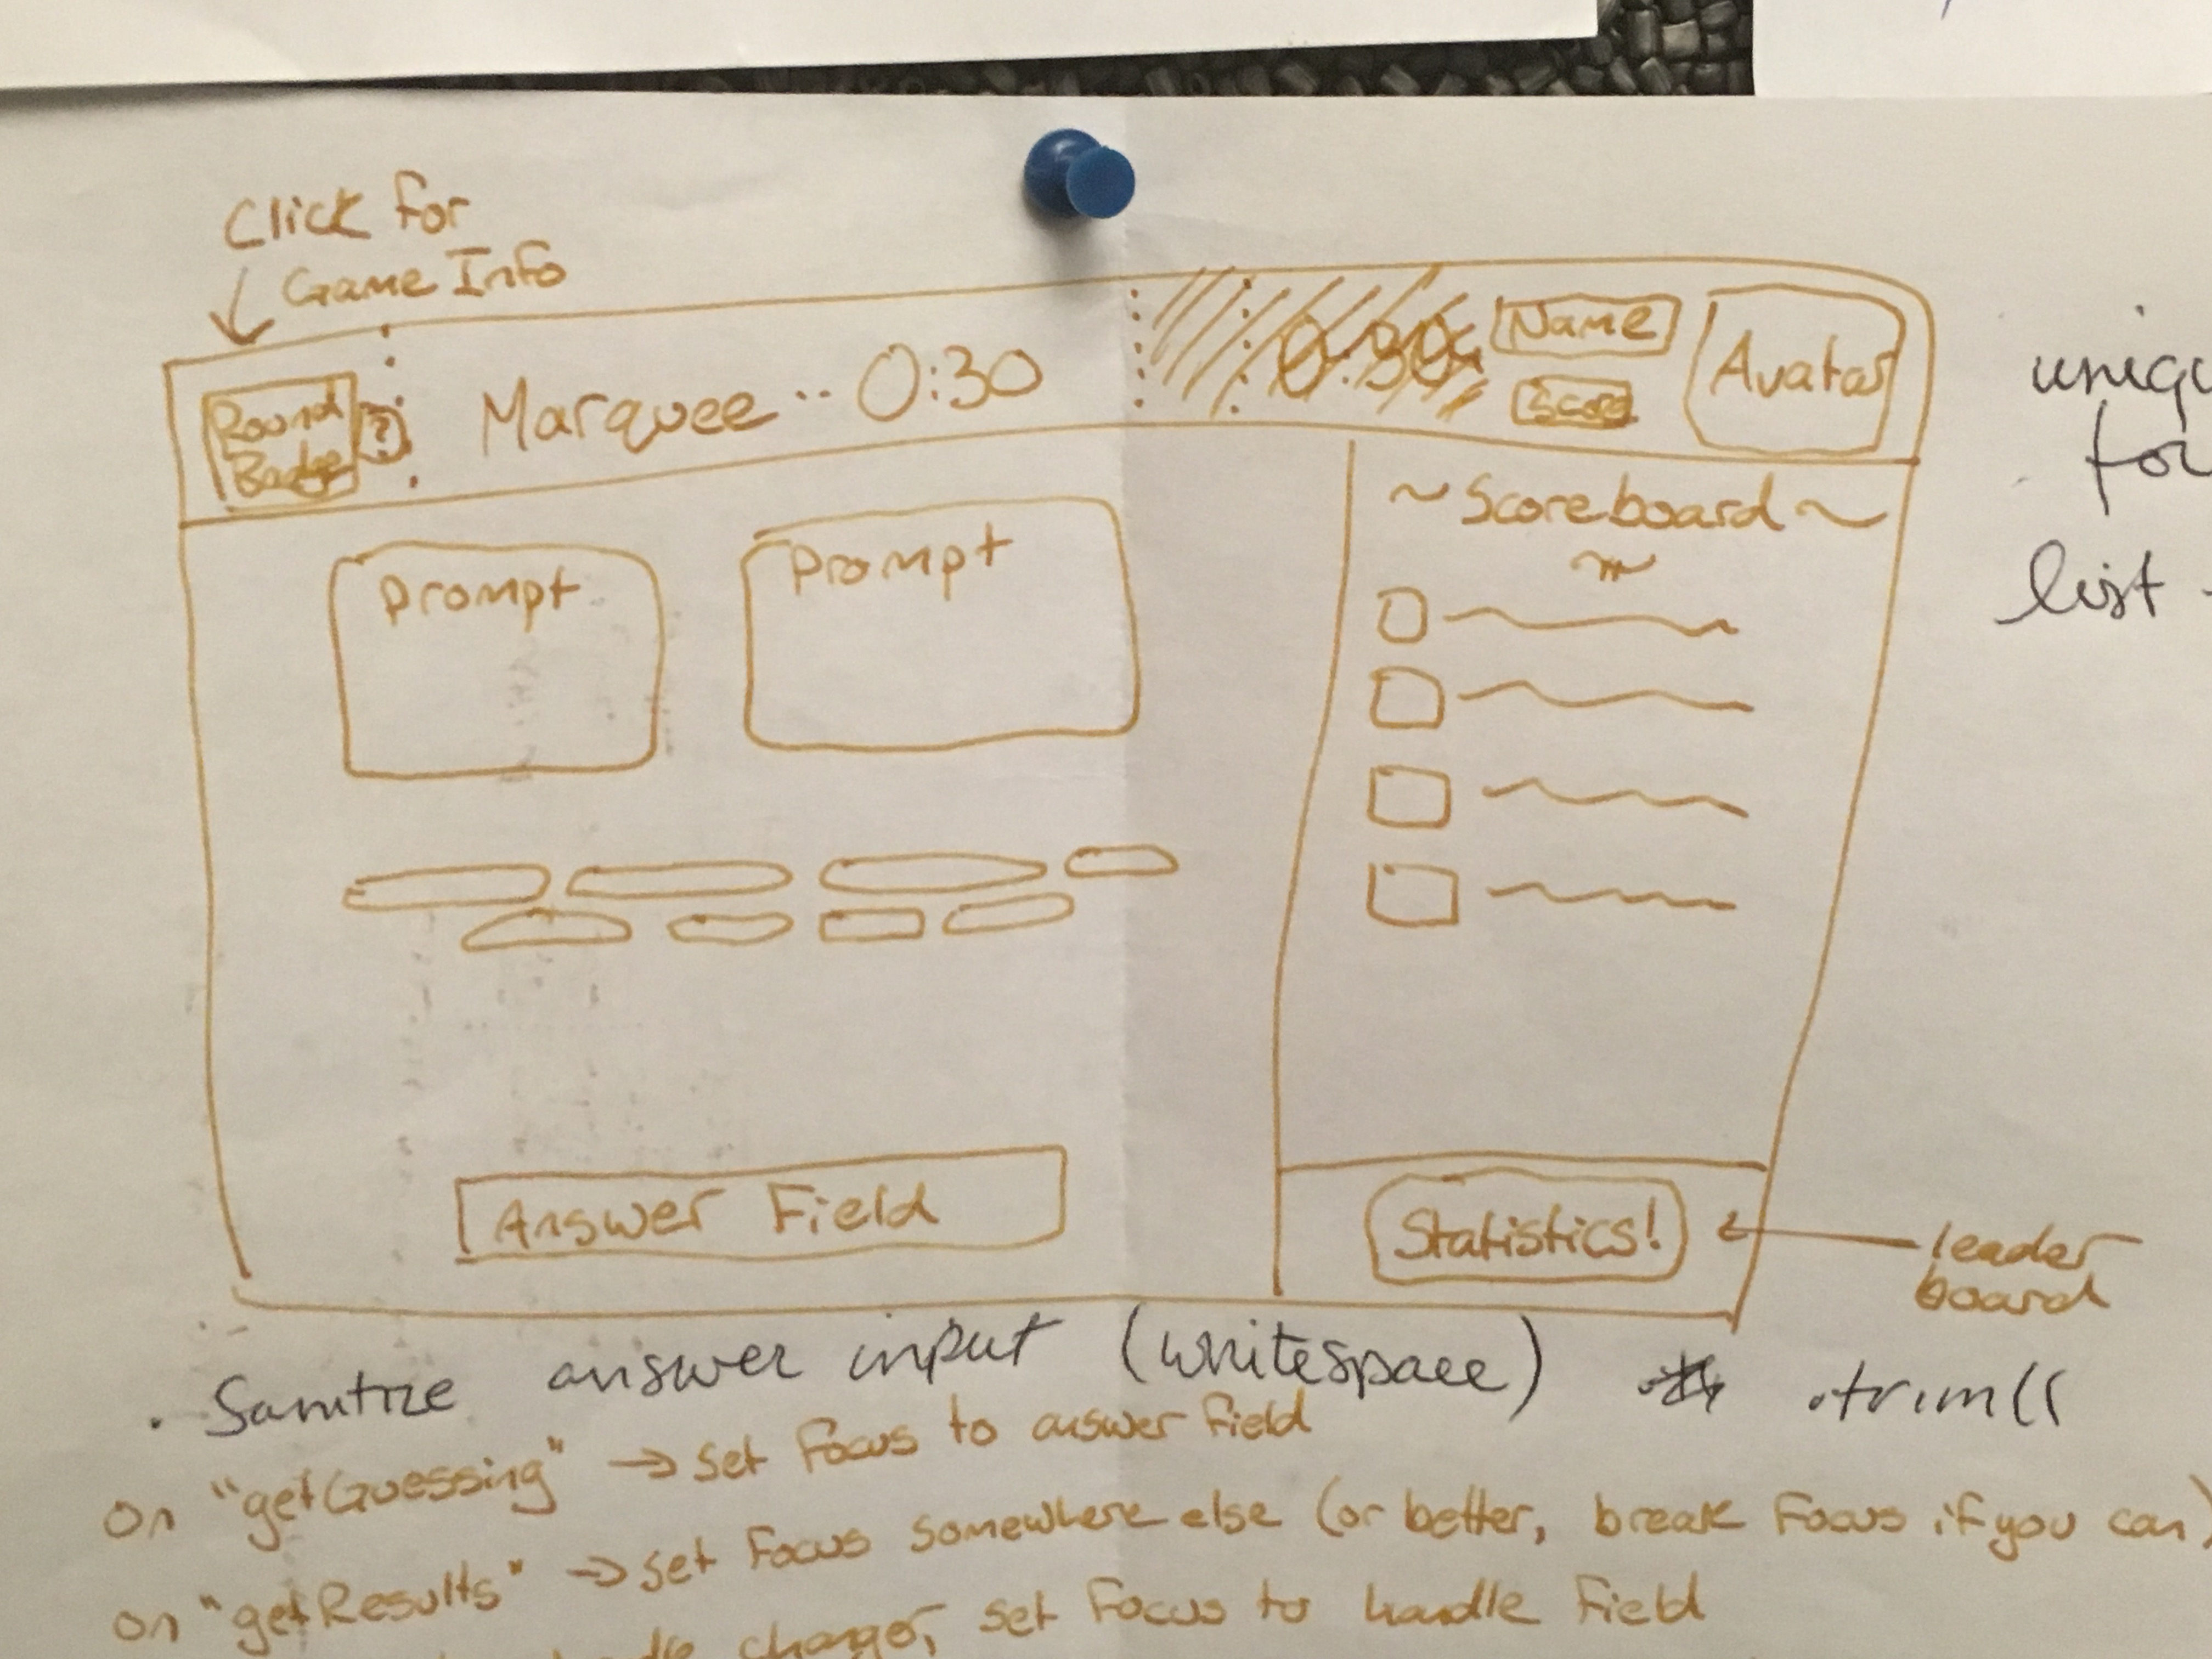 Click for
Game Info
Round
Badge
?
Marquee .. 0:30
0:30
Name
Score
Avatar
~ Scoreboard ~
Prompt
Prompt
Answer Field
Statistics!
leader
board
for
list
. Sanitize answer input (whitespace) .trim((
on "getGuessing" → set focus to answer field
on "getResults" → set focus somewhere else (or better, break focus if you can)
changer, set focus to handle field